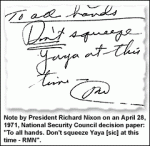 To all hands
Don't squeeze
Yaya at this
time RN
Note by President Richard Nixon on an April 28,
1971, National Security Council decision paper:
"To all hands. Don't squeeze Yaya [sic] at this
time - RMN".